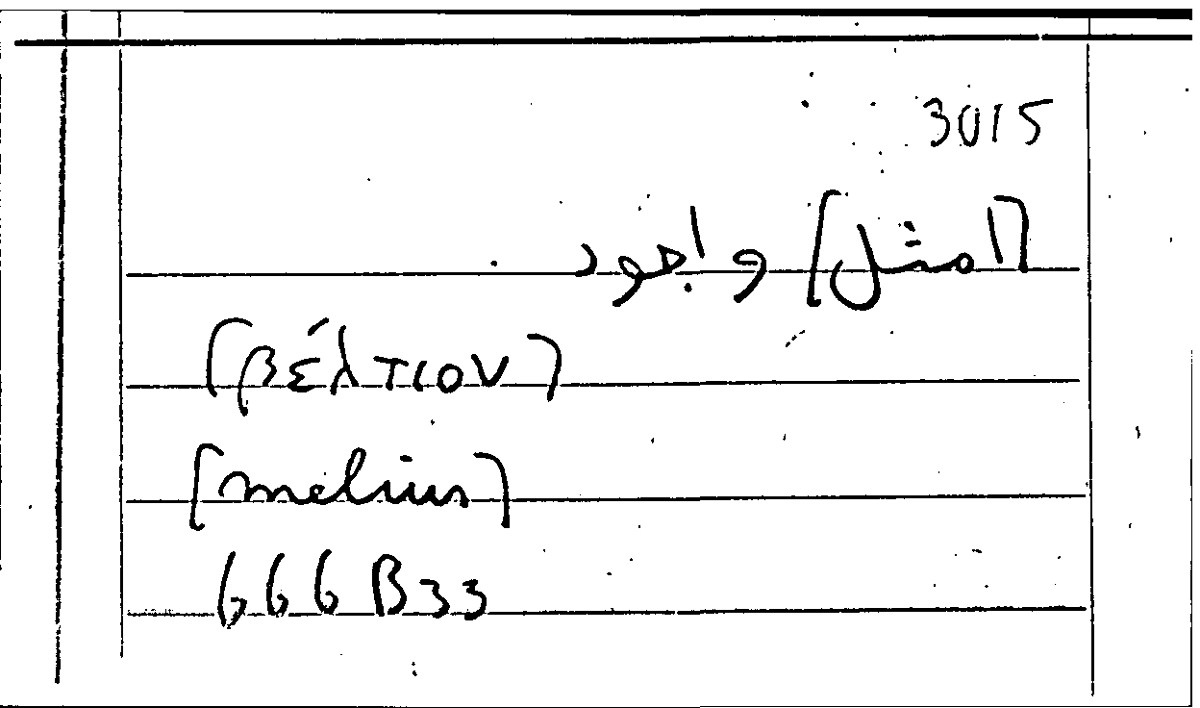 3015
[امثل] واجود
[βέλτιον]
[melius]
666 B33